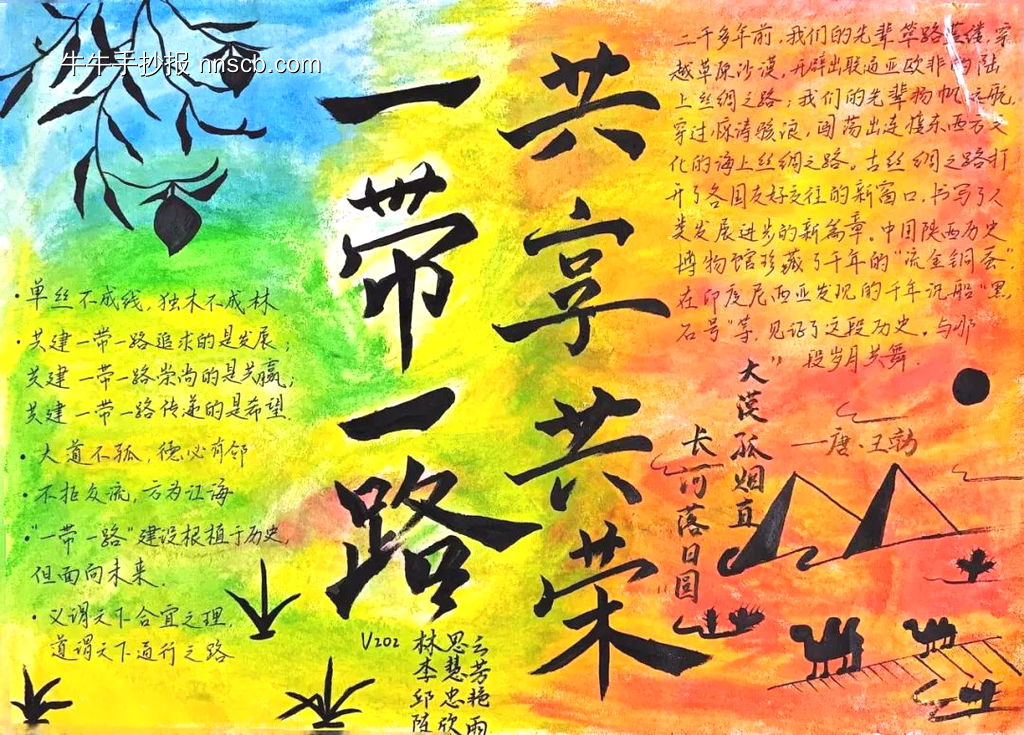 牛牛手抄报 nnscb.com
共享共荣
一带一路
二千多年前,我们的先辈筚路蓝缕,穿
越草原沙漠,开辟出联通亚欧非的陆
上丝绸之路;我们的先辈扬帆远航,
穿过惊涛骇浪,闯荡出连接东西方文
化的海上丝绸之路。古丝绸之路打
开了各国友好交往的新窗口,书写了人
类发展进步的新篇章。中国陕西历史
博物馆珍藏的千年的“流金铜蚕”
在印度尼西亚发现的千年沉船“黑
石号”等,见证了这段历史。与那
段岁月共舞.
大漠孤烟直
长河落日圆
—唐·王勃
·单丝不成线,独木不成林
·共建一带一路追求的是发展;
共建一带一路崇尚的是共赢;
共建一带一路传递的是希望.
·大道不孤,德必有邻
·不拒众流,方为江海
·“一带一路”建设根植于历史,
但面向未来.
·义谓天下合宜之理,
道谓天下通行之路
V202 林思云
李慧芳
邱忠艳
陈欣雨